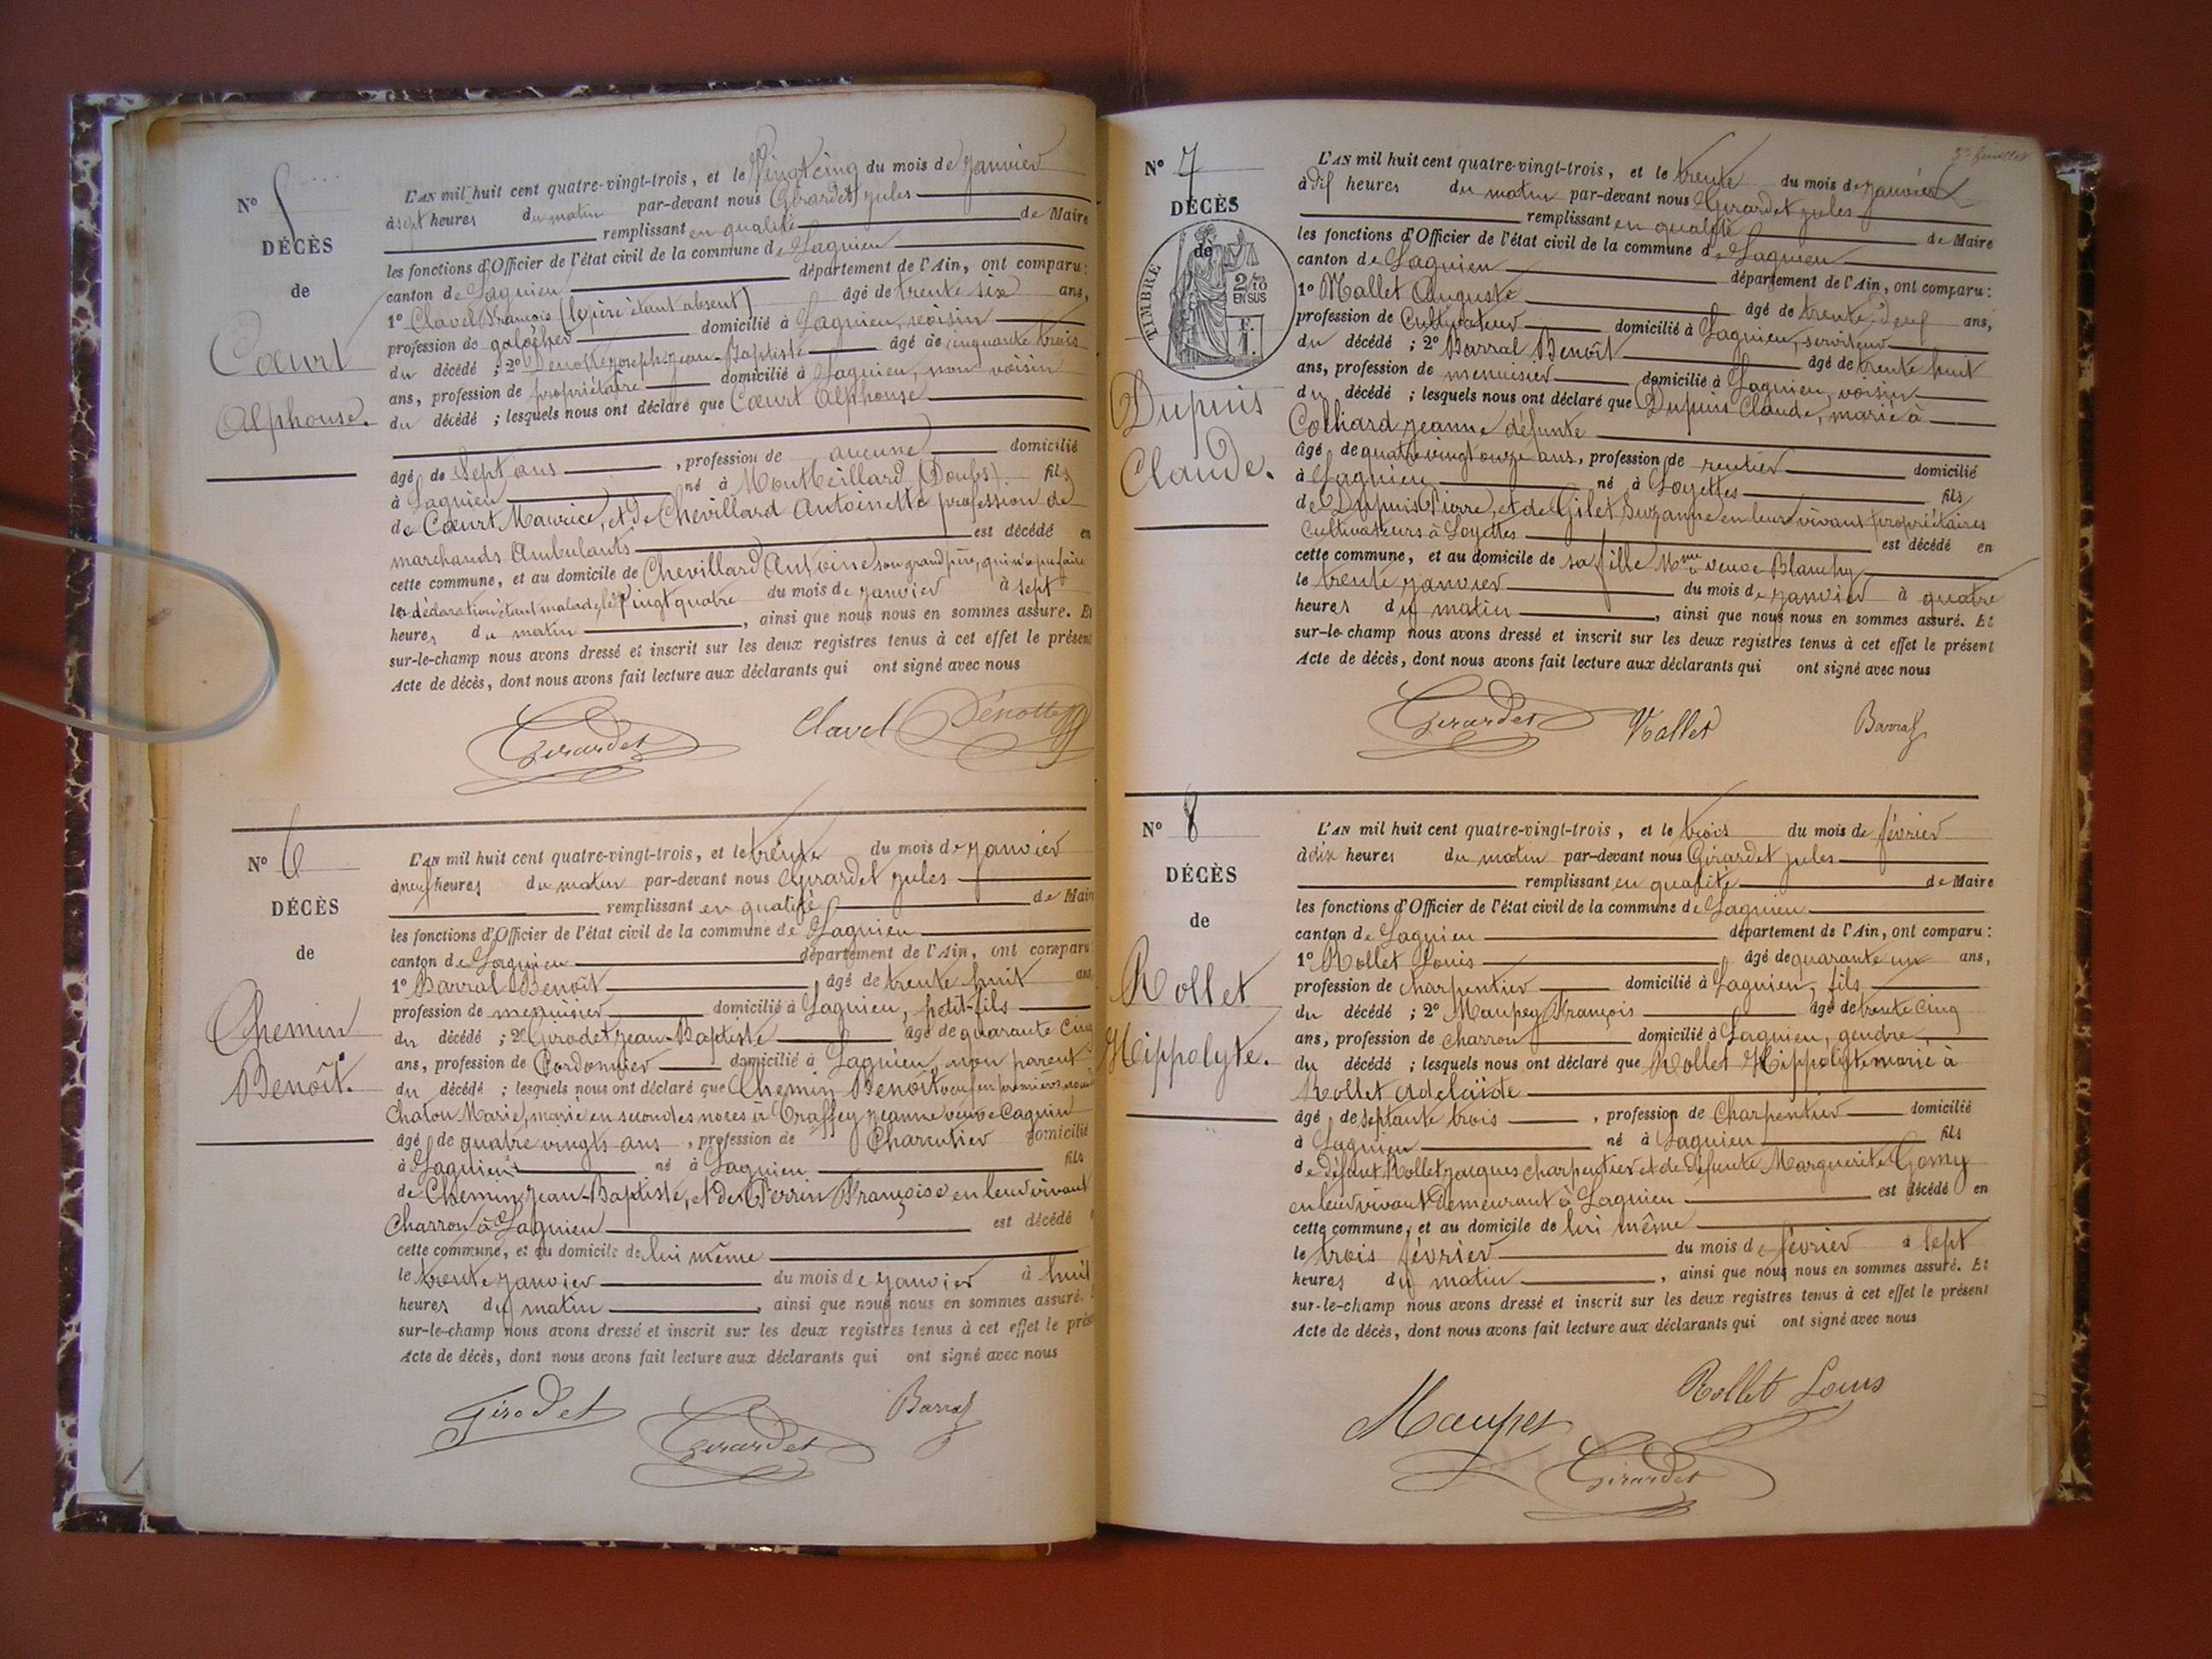 N° 5
DÉCÈS
de
Cœurt
Alphonse.
L'AN mil huit cent quatre-vingt-trois, et le Vingt cinq du mois de janvier
à sept heures du matin par-devant nous Girardet jules
remplissant en qualité de Maire
les fonctions d'Officier de l'état civil de la commune de Lagnieu
canton de Lagnieu département de l'Ain, ont comparu :
1° Clavel François (le père étant absent) âgé de trente six ans,
profession de galocher domicilié à Lagnieu, voisin
du décédé ; 2° Denotte joseph jean-Baptiste âgé de cinquante trois
ans, profession de propriétaire domicilié à Lagnieu, non voisin
du décédé ; lesquels nous ont déclaré que Cœurt Alphonse
âgé de Sept ans , profession de aucune domicilié
à Lagnieu né à Montbéillard (Doubs) fils
de Cœurt Maurice, et de Chevillard Antoinette profession de
marchands Ambulants est décédé en
cette commune, et au domicile de Chevillard Antoine son grand père, qui n'a pu faire
la déclaration étant malade, le Vingt quatre du mois de janvier à sept
heures du matin , ainsi que nous nous en sommes assuré. Et
sur-le-champ nous avons dressé et inscrit sur les deux registres tenus à cet effet le présent
Acte de décès, dont nous avons fait lecture aux déclarants qui ont signé avec nous
Girardet Clavel Dénotte
N° 6
DÉCÈS
de
Chemin
Benoît.
L'AN mil huit cent quatre-vingt-trois, et le trente du mois de janvier
à neuf heures du matin par-devant nous Girardet jules
remplissant en qualité de Mair
les fonctions d'Officier de l'état civil de la commune de Lagnieu
canton de Lagnieu département de l'Ain, ont comparu
1° Barral Benoît âgé de trente huit ans
profession de menuisier domicilié à Lagnieu, petit-fils
du décédé ; 2° Girodet jean-Baptiste âgé de quarante cinq
ans, profession de Cordonnier domicilié à Lagnieu, non parent
du décédé ; lesquels nous ont déclaré que Chemin Benoît veuf en premières noces
Chaton Marie, marié en secondes noces à Traffey jeanne veuve Caguin
âgé de quatre vingts ans , profession de Charcutier domicilié
à Lagnieu né à Lagnieu fils
de Chemin jean-Baptiste, et de Perrin Françoise en leur vivant
Charron à Lagnieu est décédé
cette commune, et au domicile de lui même
le trente janvier du mois de janvier à huit
heures du matin , ainsi que nous nous en sommes assuré.
sur-le-champ nous avons dressé et inscrit sur les deux registres tenus à cet effet le prés
Acte de décès, dont nous avons fait lecture aux déclarants qui ont signé avec nous
Girodet Girardet Barral
3e feuillet
N° 7
DÉCÈS
de
TIMBRE
2/10
EN SUS
Dupuis
Claude.
L'AN mil huit cent quatre-vingt-trois, et le trente du mois de janvier
à dix heures du matin par-devant nous Girardet jules
remplissant en qualité de Maire
les fonctions d'Officier de l'état civil de la commune de Lagnieu
canton de Lagnieu département de l'Ain, ont comparu :
1° Mallet Auguste âgé de trente neuf ans,
profession de Cultivateur domicilié à Lagnieu, serviteur
du décédé ; 2° Barral Benoît âgé de trente huit
ans, profession de menuisier domicilié à Lagnieu, voisin
du décédé ; lesquels nous ont déclaré que Dupuis Claude, marié à
Colhard jeanne défunte
âgé de quatre vingt onze ans, profession de rentier domicilié
à Lagnieu né à Loyettes fils
de Dupuis Pierre, et de Gilet Suzanne en leur vivant propriétaires
Cultivateurs à Loyettes est décédé en
cette commune, et au domicile de sa fille Mme veuve Blanchy
le trente janvier du mois de janvier à quatre
heures du matin , ainsi que nous nous en sommes assuré. Et
sur-le-champ nous avons dressé et inscrit sur les deux registres tenus à cet effet le présent
Acte de décès, dont nous avons fait lecture aux déclarants qui ont signé avec nous
Girardet Mallet Barral
N° 8
DÉCÈS
de
Rollet
Hippolyte.
L'AN mil huit cent quatre-vingt-trois, et le trois du mois de février
à dix heures du matin par-devant nous Girardet jules
remplissant en qualité de Maire
les fonctions d'Officier de l'état civil de la commune de Lagnieu
canton de Lagnieu département de l'Ain, ont comparu :
1° Rollet Louis âgé de quarante un ans,
profession de charpentier domicilié à Lagnieu, fils
du décédé ; 2° Maupey François âgé de trente cinq
ans, profession de charron domicilié à Lagnieu, gendre
du décédé ; lesquels nous ont déclaré que Rollet Hippolyte marié à
Rollet Adelaïde
âgé de septante trois , profession de Charpentier domicilié
à Lagnieu né à Lagnieu fils
de défunt Rollet jacques charpentier et de défunte Marguerite Gomy
en leur vivant demeurant à Lagnieu est décédé en
cette commune, et au domicile de lui même
le trois février du mois de février à sept
heures du matin , ainsi que nous nous en sommes assuré. Et
sur-le-champ nous avons dressé et inscrit sur les deux registres tenus à cet effet le présent
Acte de décès, dont nous avons fait lecture aux déclarants qui ont signé avec nous
Rollet Louis
Maupey Girardet